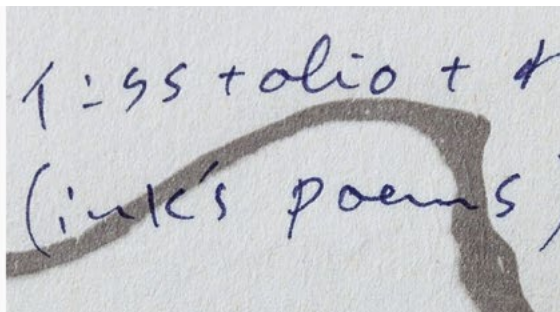 T=ss+olio+
(ink's poems)